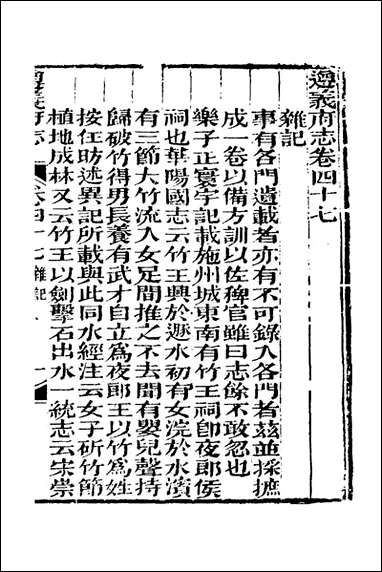 遵義府志卷四十七
雜記
事有各門遺載者亦有不可錄入各門者茲並採摭
成一卷以備方訓以佐稗官雖曰志餘不敢忽也
樂子正寰宇記載施州城東南有竹王祠卽夜郎侯
祠也華陽國志云竹王興於遯水初有女浣於水濱
有三節大竹流入女足間推之不去聞有嬰兒聲持
歸破竹得男長養有武才自立爲夜郎王以竹爲姓
按任昉述異記所載與此同水經注云女子斫竹節
植地成林又云竹王以劍擊石出水一統志云宋崇
遵義府志
卷四十七 雜記
一